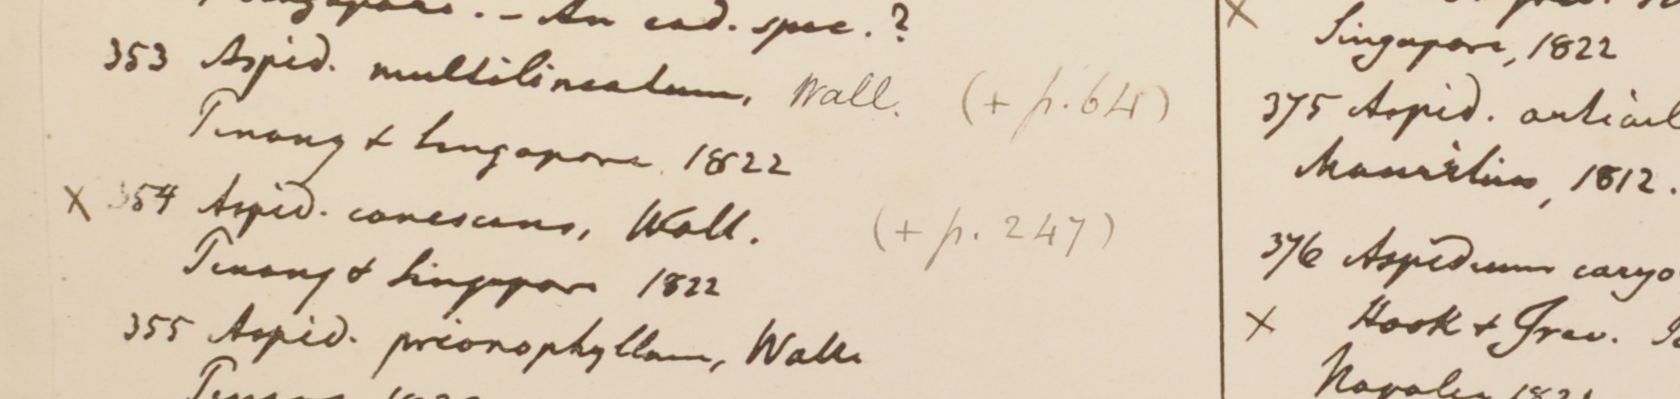 Singapore. - An ead. spec.?
353 Aspid. multilineatum, Wall. (+ p. 64)
Pinang & Singapore 1822
X 354 Aspid. canescens, Wall. (+ p. 247)
Pinang & Singapore 1822
355 Aspid. prionophyllum, Wall.
X
Singapore, 1822
375 Aspid.
Mauritius, 1812.
376 Aspidium caryo
X Hook & Grev.